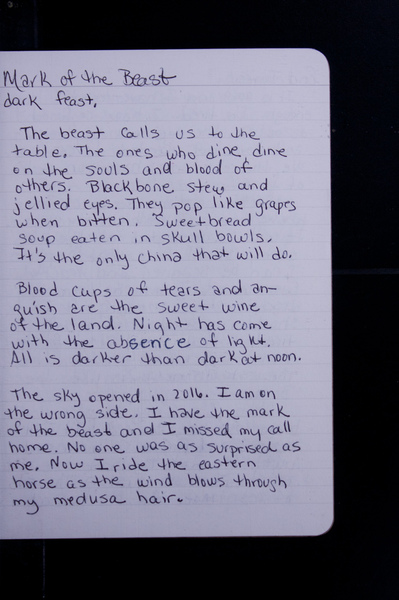 Mark of the Beast
dark feast.
The beast calls us to the
table. The ones who dine, dine
on the souls and blood of
others. Blackbone stew and
jellied eyes. They pop like grapes
when bitten. Sweetbread
soup eaten in skull bowls.
It's the only china that will do.
Blood cups of tears and an-
guish are the sweet wine
of the land. Night has come
with the absence of light.
All is darker than dark at noon.
The sky opened in 2016. I am on
the wrong side. I have the mark
of the beast and I missed my call
home. No one was as surprised as
me. Now I ride the eastern
horse as the wind blows through
my medusa hair.